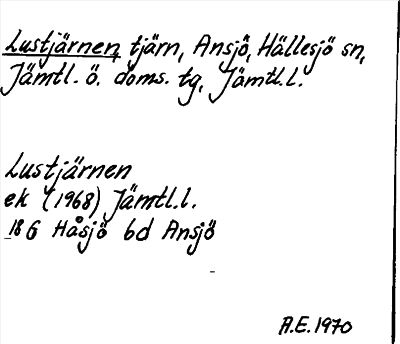 Lustjärnen, tjärn, Ansjö, Hällesjö sn,
Jämtl. ö. doms. tg, Jämtl.l.
Lustjärnen
ek (1968) Jämtl.l.
18G Håsjö bd Ansjö
A.E. 1970